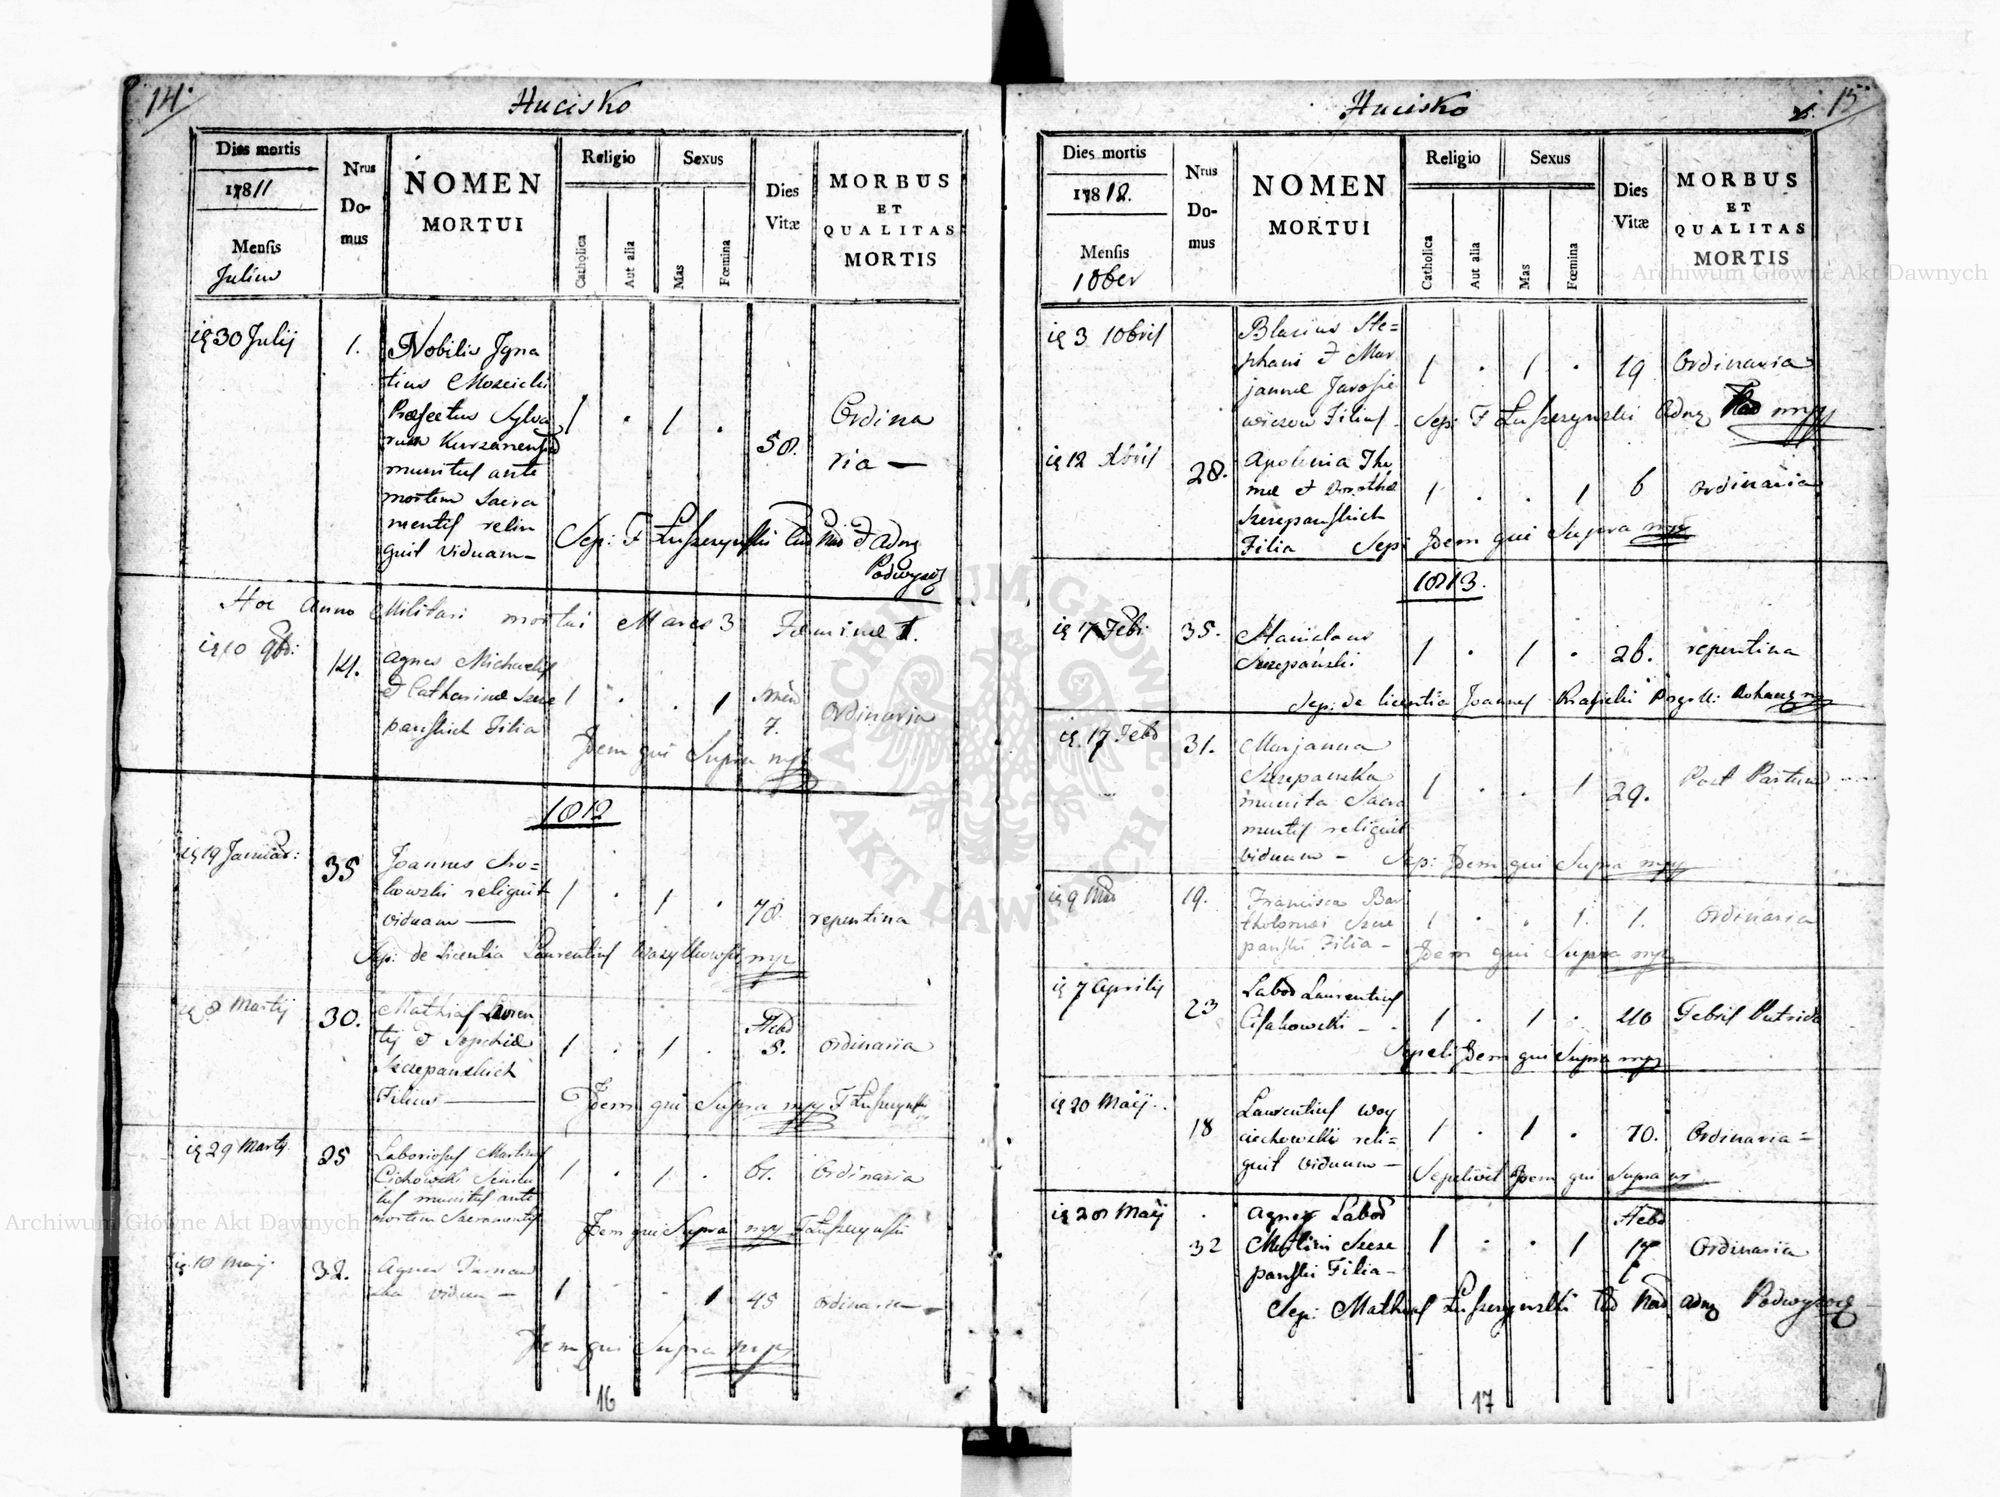 14
Hucisko
Dies mortis
1811
Mensis
Julius
Nrus
Do-
mus
NOMEN
MORTUI
Religio
Catholica
Aut alia
Sexus
Mas
Fœmina
Dies
Vitæ
MORBUS
ET
QUALITAS
MORTIS
30 Julij
1.
Nobilis Igna
tius Moscicki
Præfectus Sylva
rum
munitus ante
mortem Sacra
mentis relin
quit viduam
1 . 1 .
58.
Ordina
ria
Sep: F Łuszczynski
Hoc Anno Militari mortui Mares 3 Feminæ 1.
10 9br:
14.
Agnes Michaelis
et Catharinæ Szcze
panskich Filia
1 . . 1
7.
Ordinaria
Idem qui Supra mpp
1812
19 Januar:
35
Joannes
kowski reliquit
viduam
1 . 1 .
78.
repentina
Sep: de Licentia Laurentius Wasylkowski mpp
8 Martij
30.
Mathias Lauren
tij et Sophiæ
Szczepanskich
Filius
1 . 1 .
Hebd
5.
ordinaria
Idem qui Supra mpp F Łuszczynski
29 Martij
25
Laboriosus Martinus
Cichowski
tus munitus ante
mortem Sacramentis
1 . 1 .
61.
Ordinaria
Idem qui Supra mpp F Łuszczynski
10 Maij
32.
Agnes
vidua
1 . . 1
45
ordinaria
Idem qui Supra mpp
16
15
Hucisko
Dies mortis
1812.
Mensis
10ber
Nrus
Do-
mus
NOMEN
MORTUI
Religio
Catholica
Aut alia
Sexus
Mas
Fœmina
Dies
Vitæ
MORBUS
ET
QUALITAS
MORTIS
3 10bris
Blasius Ste=
phani et Mar
jannæ Jarosie
wiczow Filius
1 . 1 .
19
Ordinaria
Sep: F Łuszczynski mpp
12 Xbris
28.
Apolonia Tho
mæ et Dorothæ
Szczepanskich
Filia
1 . . 1
6
Ordinaria
Sep: Idem qui Supra mpp
1813.
17 Febr:
35.
Stanislaus
Szczepański
1 . 1 .
26.
repentina
Sep: de licentia Joannes
17 Febr
31.
Marjanna
Szczepanska
munita Sacra
mentis reliquit
viduum
1 . . 1
29.
Post Partum
Sep: Idem qui Supra mpp
9 Mar
19.
Francisca Bar
tholomei Szcze
panski Filia
1 . . 1.
1.
Ordinaria
Idem qui Supra mpp
7 Aprilis
23
Labos Laurentius
Cichowski
1 . 1 .
40
Febris Putrida
Sepeli Idem qui Supra mpp
20 Maij
18
Laurentius Woy
ciechowski reli=
quit viduam
1 . 1 .
70.
Ordinaria
Sepelivit Idem qui Supra
28 Maij
32
Agnes Labos
Martini Szcze
panski Filia
1 . . 1
Hebd
17
Ordinaria
Sep: Mathias Łuszczynski
17
Archiwum Główne Akt Dawnych
Archiwum Główne Akt Dawnych
ARCHIWUM GŁÓWNE AKT DAWNYCH